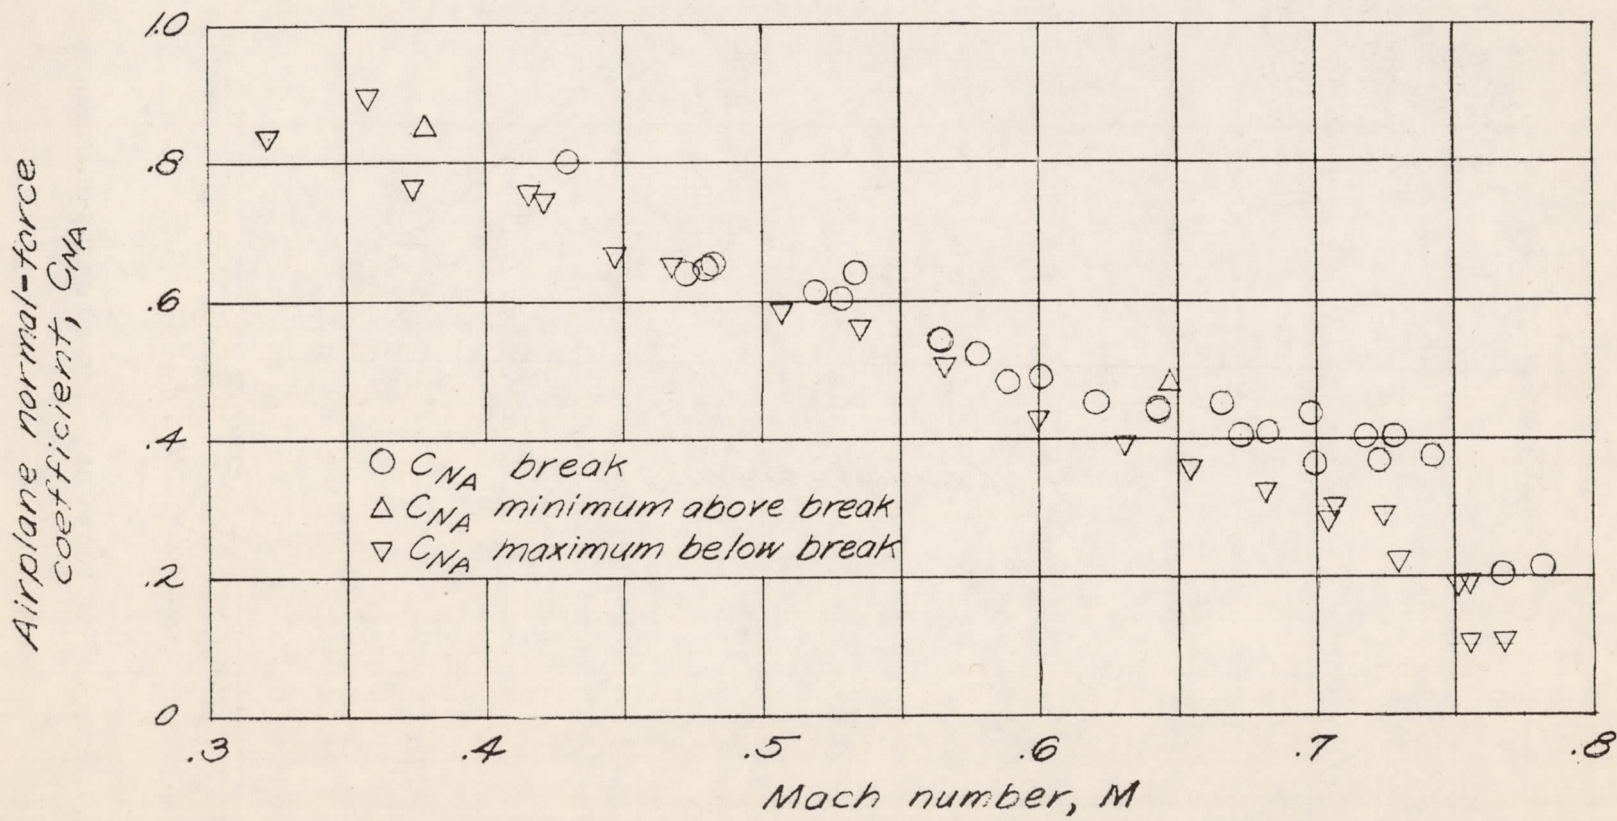 1.0
.8
.6
.4
.2
0
Airplane normal-force
coefficient, CNA
○ CNA break
△ CNA minimum above break
▽ CNA maximum below break
.3 .4 .5 .6 .7 .8
Mach number, M